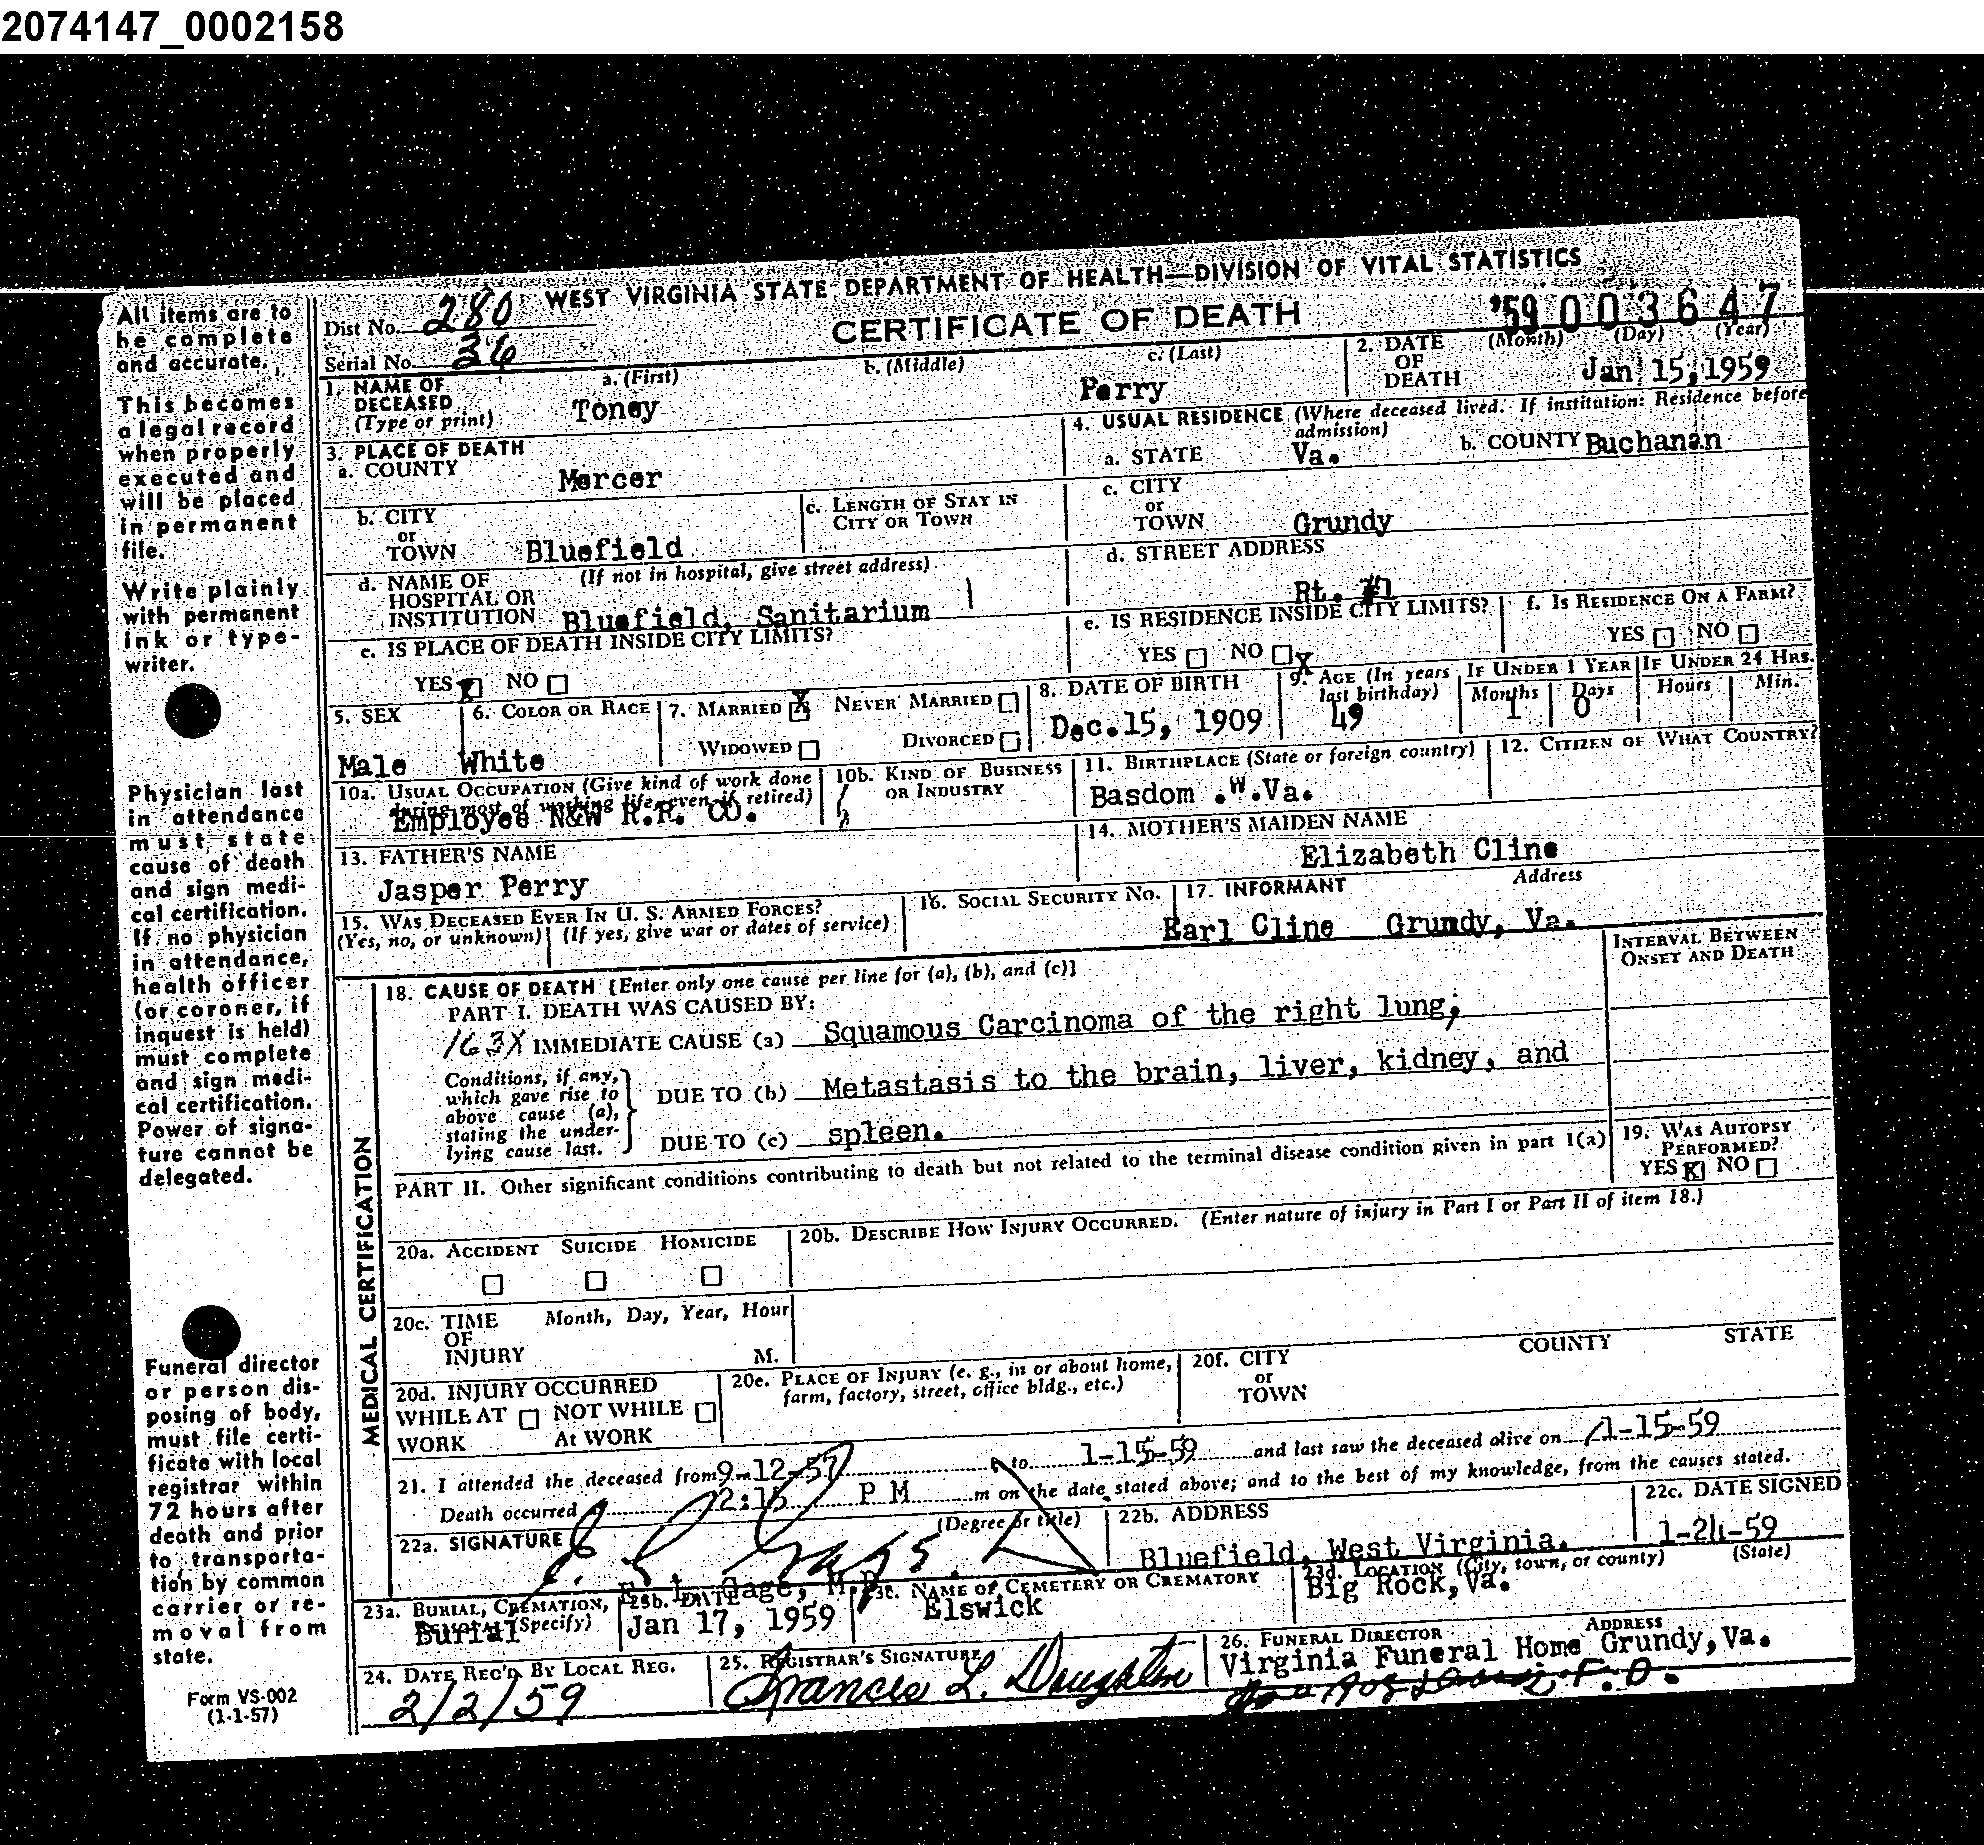 2074147_0002158
WEST VIRGINIA STATE DEPARTMENT OF HEALTH—DIVISION OF VITAL STATISTICS
CERTIFICATE OF DEATH
'59 003647
Dist No. 280
Serial No. 36
All items are to
be complete
and accurate.
This becomes
a legal record
when properly
executed and
will be placed
in permanent
file.
Write plainly
with permanent
ink or type-
writer.
Physician last
in attendance
must state
cause of death
and sign medi-
cal certification.
If no physician
in attendance,
health officer
(or coroner, if
inquest is held)
must complete
and sign medi-
cal certification.
Power of signa-
ture cannot be
delegated.
Funeral director
or person dis-
posing of body,
must file certi-
ficate with local
registrar within
72 hours after
death and prior
to transporta-
tion by common
carrier or re-
moval from
state.
Form VS-002
(1-1-57)
1. NAME OF DECEASED (Type or print) a. (First) Toney b. (Middle) c. (Last) Perry
2. DATE OF DEATH (Month) (Day) (Year) Jan 15, 1959
3. PLACE OF DEATH
a. COUNTY Mercer
b. CITY or TOWN Bluefield
c. LENGTH OF STAY IN CITY OR TOWN
d. NAME OF HOSPITAL OR INSTITUTION (If not in hospital, give street address) Bluefield, Sanitarium
e. IS PLACE OF DEATH INSIDE CITY LIMITS?
YES X NO
4. USUAL RESIDENCE (Where deceased lived. If institution: Residence before admission)
a. STATE Va. b. COUNTY Buchanan
c. CITY or TOWN Grundy
d. STREET ADDRESS
Rt. #1
e. IS RESIDENCE INSIDE CITY LIMITS? YES NO X
f. IS RESIDENCE ON A FARM? YES NO
5. SEX Male
6. COLOR OR RACE White
7. MARRIED X NEVER MARRIED
WIDOWED DIVORCED
8. DATE OF BIRTH Dec.15, 1909
9. AGE (In years last birthday) 49
IF UNDER 1 YEAR Months 1 Days 0
IF UNDER 24 HRS. Hours Min.
10a. USUAL OCCUPATION (Give kind of work done during most of working life, even if retired)
Employee N&W R.R. CO.
10b. KIND OF BUSINESS OR INDUSTRY
11. BIRTHPLACE (State or foreign country)
Basdom .W.Va.
12. CITIZEN OF WHAT COUNTRY?
13. FATHER'S NAME
Jasper Perry
14. MOTHER'S MAIDEN NAME
Elizabeth Cline
15. WAS DECEASED EVER IN U. S. ARMED FORCES?
(Yes, no, or unknown) (If yes, give war or dates of service)
16. SOCIAL SECURITY No.
17. INFORMANT Address
Earl Cline Grundy, Va.
MEDICAL CERTIFICATION
18. CAUSE OF DEATH [Enter only one cause per line for (a), (b), and (c)]
INTERVAL BETWEEN ONSET AND DEATH
PART I. DEATH WAS CAUSED BY:
163X IMMEDIATE CAUSE (a) Squamous Carcinoma of the right lung;
Conditions, if any, which gave rise to above cause (a), stating the underlying cause last.
DUE TO (b) Metastasis to the brain, liver, kidney, and
DUE TO (c) spleen.
PART II. Other significant conditions contributing to death but not related to the terminal disease condition given in part I(a)
19. WAS AUTOPSY PERFORMED?
YES X NO
20a. ACCIDENT SUICIDE HOMICIDE
20b. DESCRIBE HOW INJURY OCCURRED. (Enter nature of injury in Part I or Part II of item 18.)
20c. TIME OF INJURY Month, Day, Year, Hour M.
20d. INJURY OCCURRED
WHILE AT WORK NOT WHILE At WORK
20e. PLACE OF INJURY (e. g., in or about home, farm, factory, street, office bldg., etc.)
20f. CITY or TOWN COUNTY STATE
21. I attended the deceased from 9-12-57 to 1-15-59 and last saw the deceased alive on 1-15-59
Death occurred 2:15 P M m on the date stated above; and to the best of my knowledge, from the causes stated.
22a. SIGNATURE (Degree or title)
E. L. Gage, M.D.
22b. ADDRESS
Bluefield, West Virginia.
22c. DATE SIGNED
1-24-59
23a. BURIAL, CREMATION, REMOVAL (Specify)
Burial
23b. DATE
Jan 17, 1959
23c. NAME OF CEMETERY OR CREMATORY
Elswick
23d. LOCATION (City, town, or county) (State)
Big Rock, Va.
24. DATE REC'D BY LOCAL REG.
2/2/59
25. REGISTRAR'S SIGNATURE
Frances L. Doughton
26. FUNERAL DIRECTOR ADDRESS
Virginia Funeral Home Grundy, Va.
F.D.